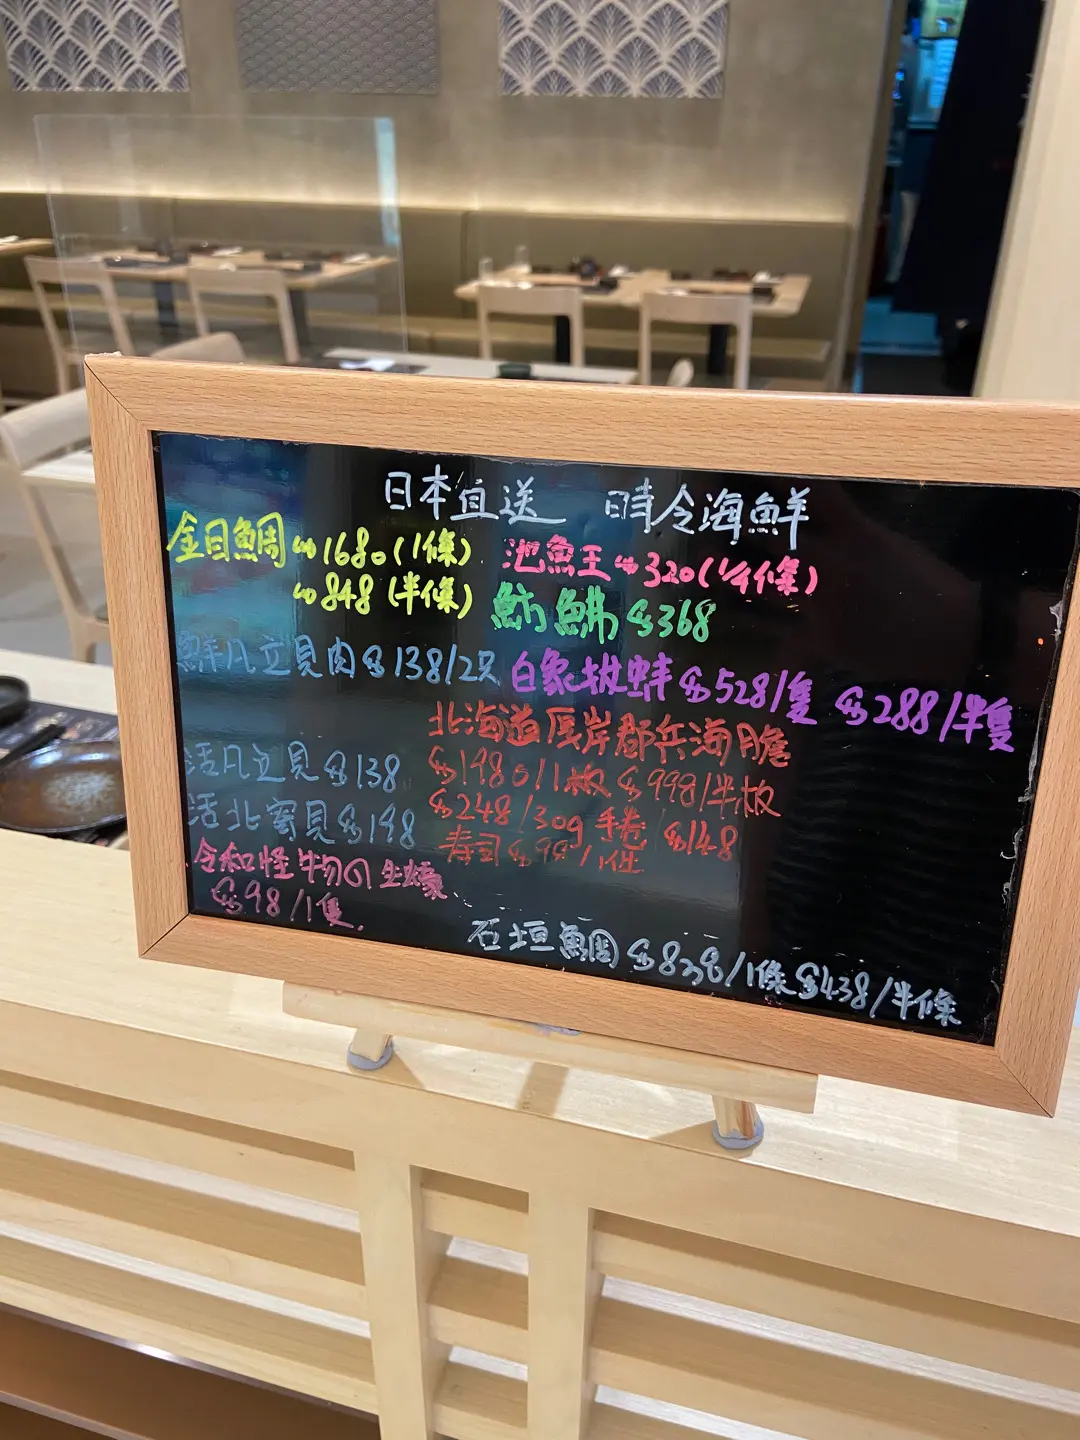 日本直送 時令海鮮
金目鯛 $1680(1條)
$848(半條)
池魚王 $320(1/4條)
魴鮄 $368
鮮凡立貝肉 $138/2只
白象拔蚌 $528/隻 $288/半隻
北海道厚岸郡兵海膽
$1980/1板 $998/半板
$248/30g 手卷 $148
寿司 $99/1件
活凡立貝 $138
活北寄貝 $198
令和怪物の生蠔
$98/1隻
石垣鯛 $838/1條 $438/半條